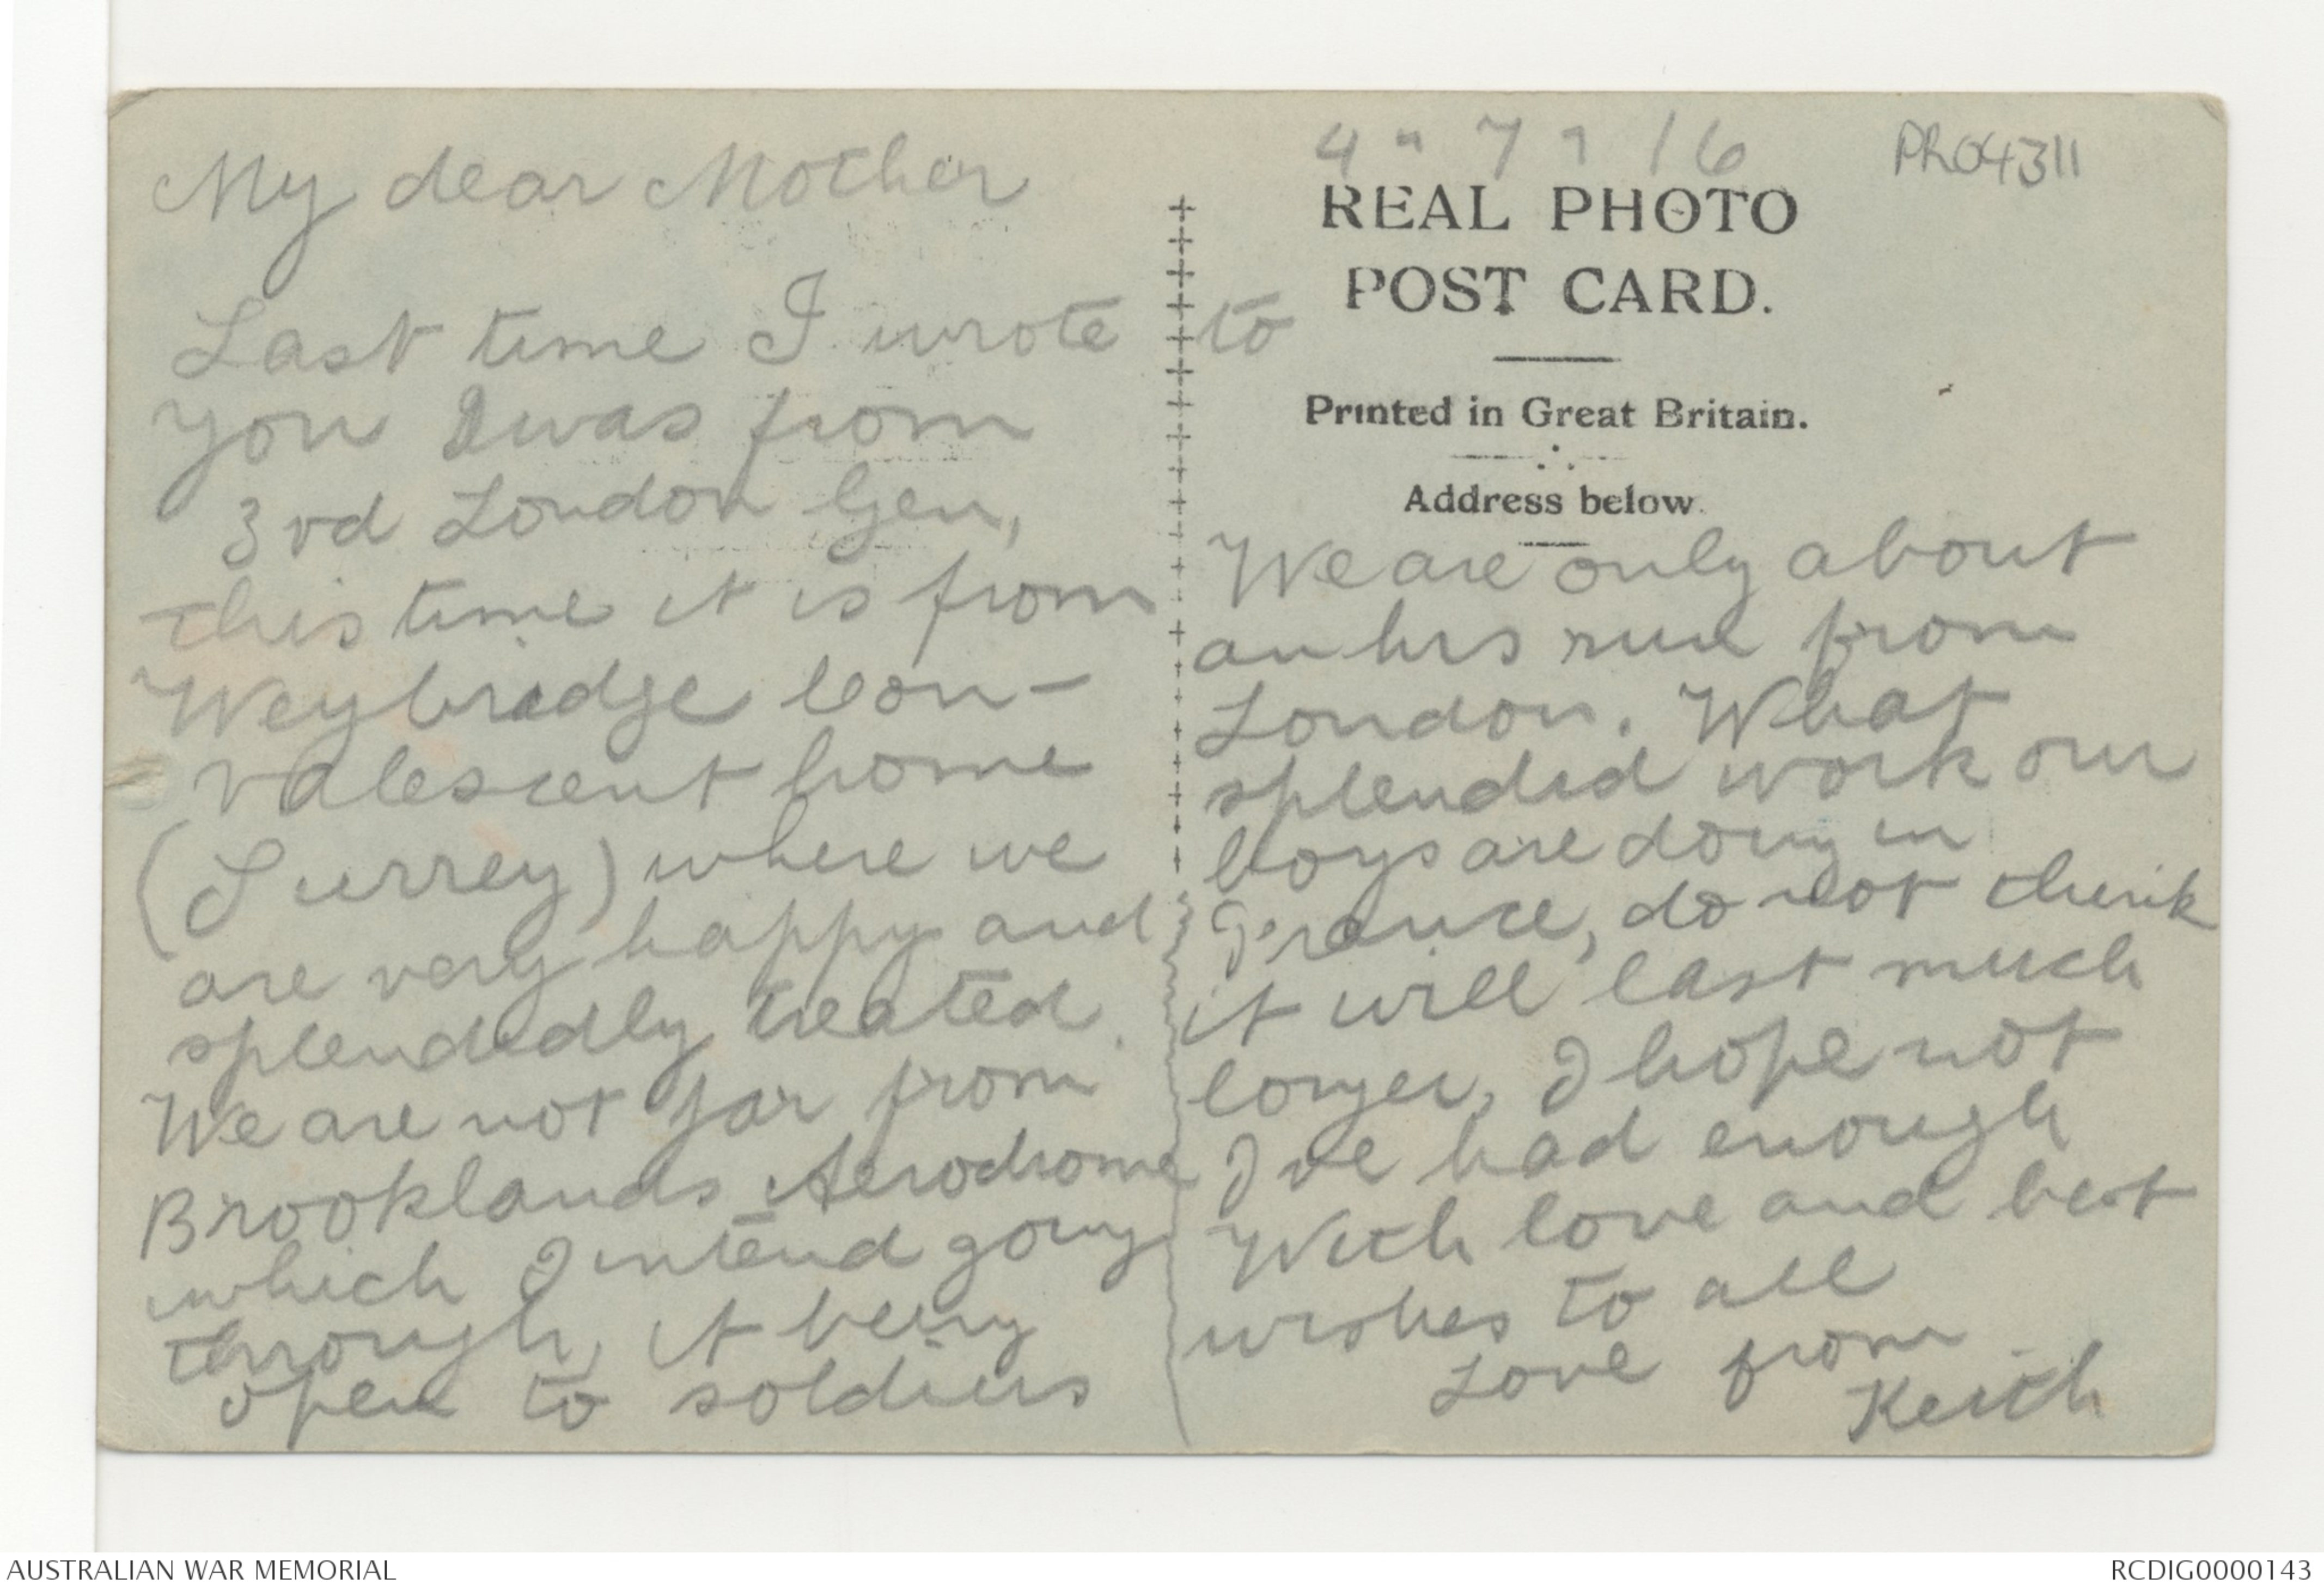 4 " 7 " 16
PR04311
REAL PHOTO
POST CARD.
Printed in Great Britain.
Address below.
My dear Mother
Last time I wrote to
you I was from
3rd London Gen,
this time it is from
Weybridge Con-
valescent home
(Surrey) where we
are very happy and
splendedly treated.
We are not far from
Brooklands Aerodrome
which I intend going
through, it being
open to soldiers
We are only about
an hrs run from
London. What
splended work our
boys are doing in
France, do not think
it will last much
longer, I hope not
I've had enough
With love and best
wishes to all
Love from
Keith
AUSTRALIAN WAR MEMORIAL
RCDIG0000143